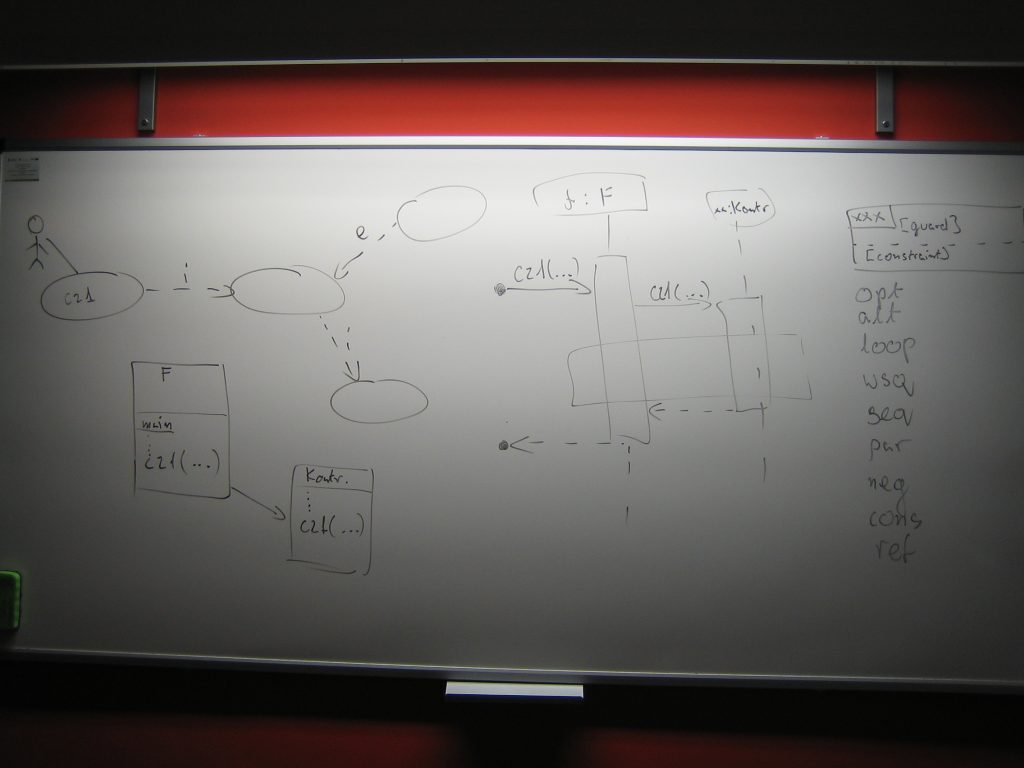 cz1
i
e
F
main
cz1(...)
Kontr.
cz1(...)
f : F
:Kontr
cz1(...)
cz1(...)
xxx [guard]
[constraint]
opt
alt
loop
wsq
seq
par
neg
cons
ref